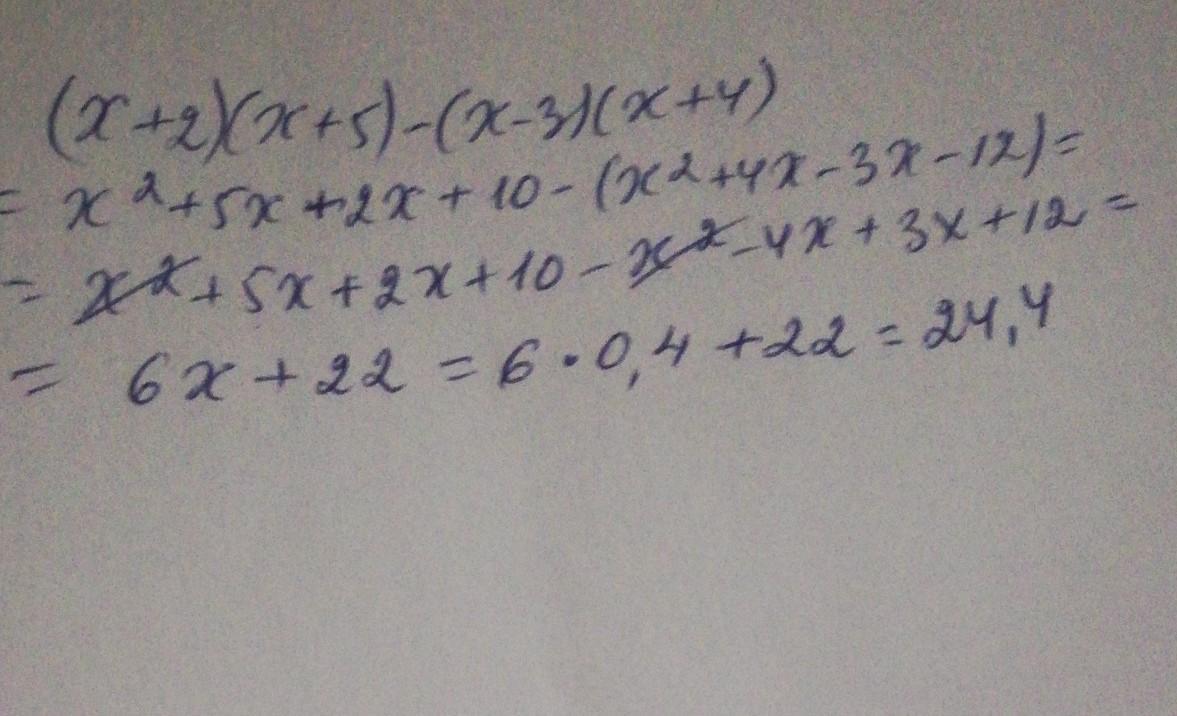 (x+2)(x+5)-(x-3)(x+4)
= x²+5x+2x+10-(x²+4x-3x-12)=
= x²+5x+2x+10-x²-4x+3x+12=
= 6x+22=6·0,4+22=24,4